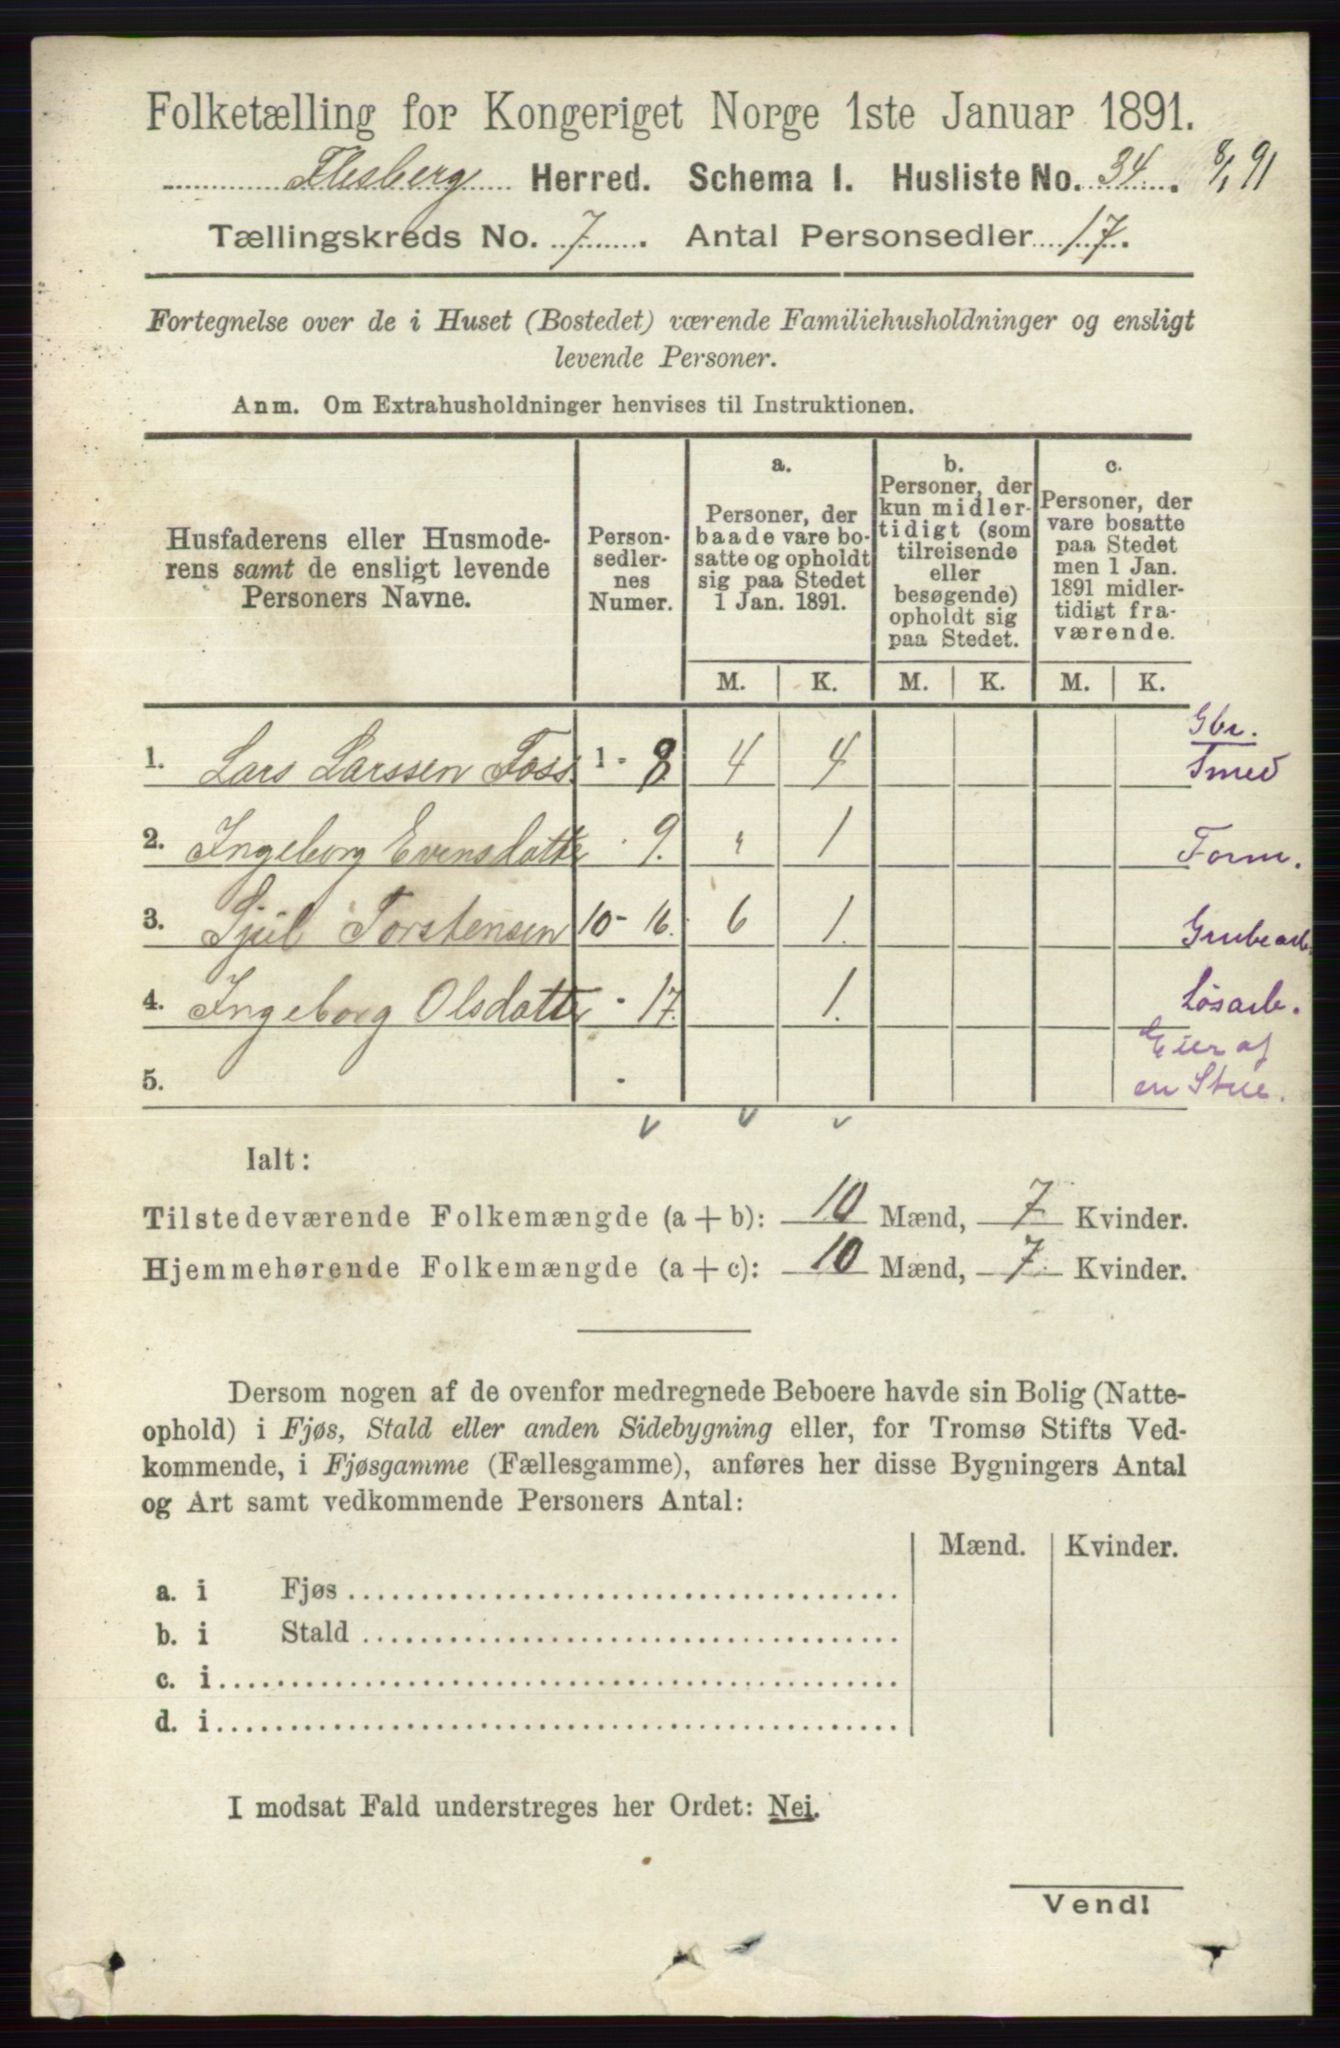 Folketælling for Kongeriget Norge 1ste Januar 1891.
Flesberg Herred. Schema 1. Husliste No. 34. 8/1 91
Tællingskreds No. 7. Antal Personsedler 17.
Fortegnelse over de i Huset (Bostedet) værende Familiehusholdninger og ensligt
levende Personer.
Anm. Om Extrahusholdninger henvises til Instruktionen.
Husfaderens eller Husmode-
rens samt de ensligt levende
Personers Navne.
Person-
sedler-
nes
Numer.
a.
Personer, der
baade vare bo-
satte og opholdt
sig paa Stedet
1 Jan. 1891.
b.
Personer, der
kun midler-
tidigt (som
tilreisende
eller
besøgende)
opholdt sig
paa Stedet.
c.
Personer, der
vare bosatte
paa Stedet
men 1 Jan.
1891 midler-
tidigt fra-
værende.
M. K. M. K. M. K.
Gbr.
1. Lars Larssen Foss 1 - 8 4 4 Smed
2. Ingeborg Evensdatter · 9. " 1 Form.
3. Sjul Torstensen 10 - 16. 6 1. Grubearb.
4. Ingeborg Olsdatter - 17. 1. Løsarb.
Eier af
5. - en Stue.
Ialt:
Tilstedeværende Folkemængde (a + b): 10 Mænd, 7 Kvinder.
Hjemmehørende Folkemængde (a + c): 10 Mænd, 7. Kvinder.
Dersom nogen af de ovenfor medregnede Beboere havde sin Bolig (Natte-
ophold) i Fjøs, Stald eller anden Sidebygning eller, for Tromsø Stifts Ved-
kommende, i Fjøsgamme (Fællesgamme), anføres her disse Bygningers Antal
og Art samt vedkommende Personers Antal:
Mænd. Kvinder.
a. i Fjøs
b. i Stald
c. i
d. i
I modsat Fald understreges her Ordet: Nei.
Vend!